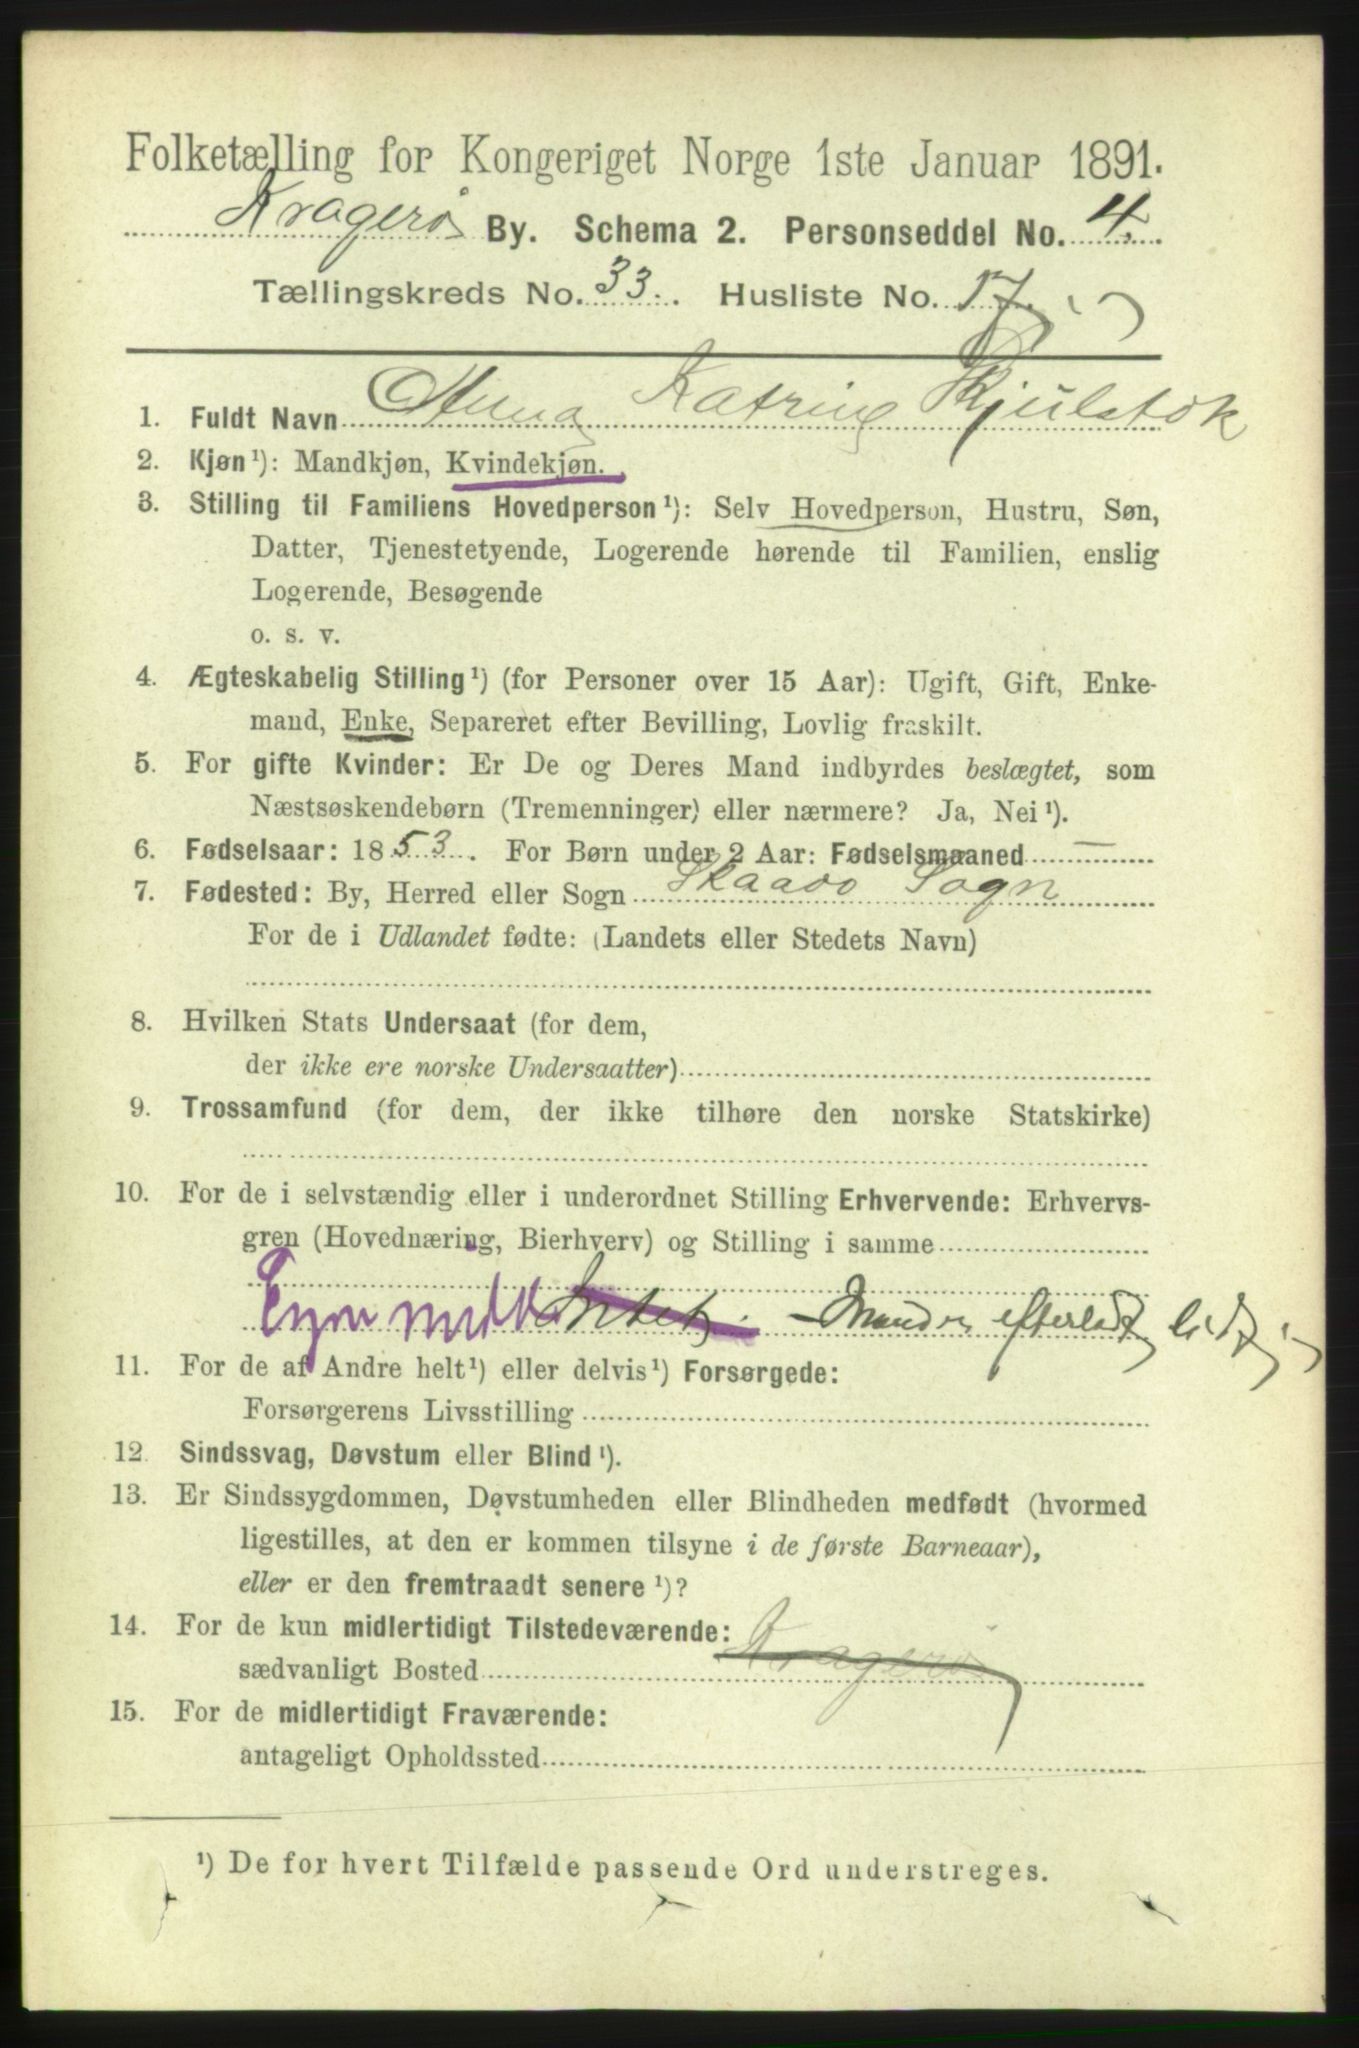 Folketælling for Kongeriget Norge 1ste Januar 1891.
Kragerø By. Schema 2. Personseddel No. 4.
Tællingskreds No. 33. Husliste No. 17.
1. Fuldt Navn Anna Katrine Kjulstok
2. Kjøn¹): Mandkjøn, Kvindekjøn.
3. Stilling til Familiens Hovedperson¹): Selv Hovedperson, Hustru, Søn,
Datter, Tjenestetyende, Logerende hørende til Familien, enslig
Logerende, Besøgende
o. s. v.
4. Ægteskabelig Stilling¹) (for Personer over 15 Aar): Ugift, Gift, Enke-
mand, Enke, Separeret efter Bevilling, Lovlig fraskilt.
5. For gifte Kvinder: Er De og Deres Mand indbyrdes beslægtet, som
Næstsøskendebørn (Tremenninger) eller nærmere? Ja, Nei¹).
6. Fødselsaar: 1853. For Børn under 2 Aar: Fødselsmaaned —
7. Fødested: By, Herred eller Sogn Skaadø Sogn
For de i Udlandet fødte: (Landets eller Stedets Navn)
8. Hvilken Stats Undersaat (for dem,
der ikke ere norske Undersaatter)
9. Trossamfund (for dem, der ikke tilhøre den norske Statskirke)
10. For de i selvstændig eller i underordnet Stilling Erhvervende: Erhvervs-
gren (Hovednæring, Bierhverv) og Stilling i samme
Egne midl Intet. - efterladt
11. For de af Andre helt¹) eller delvis¹) Forsørgede:
Forsørgerens Livsstilling
12. Sindssvag, Døvstum eller Blind¹).
13. Er Sindssygdommen, Døvstumheden eller Blindheden medfødt (hvormed
ligestilles, at den er kommen tilsyne i de første Barneaar),
eller er den fremtraadt senere¹)?
14. For de kun midlertidigt Tilstedeværende:
sædvanligt Bosted Kragerø
15. For de midlertidigt Fraværende:
antageligt Opholdssted
¹) De for hvert Tilfælde passende Ord understreges.